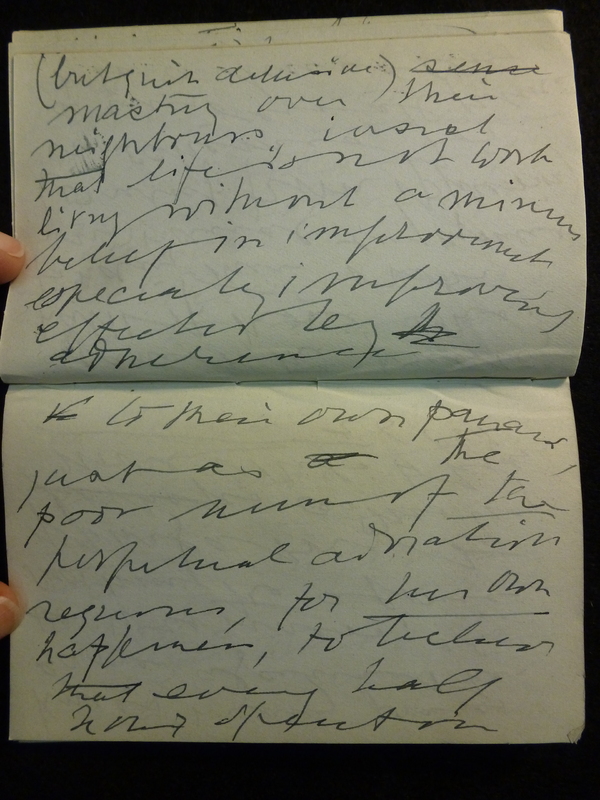 (but quite delusive) sense
mastery over their
neighbours insist
that life is not worth
living without a minimum
belief in improvement
especially improvement
effected by
adherence
to their own panacea,
just as the
poor nun of the
perpetual adoration
requires, for her own
happiness, to believe
that every half
hour's